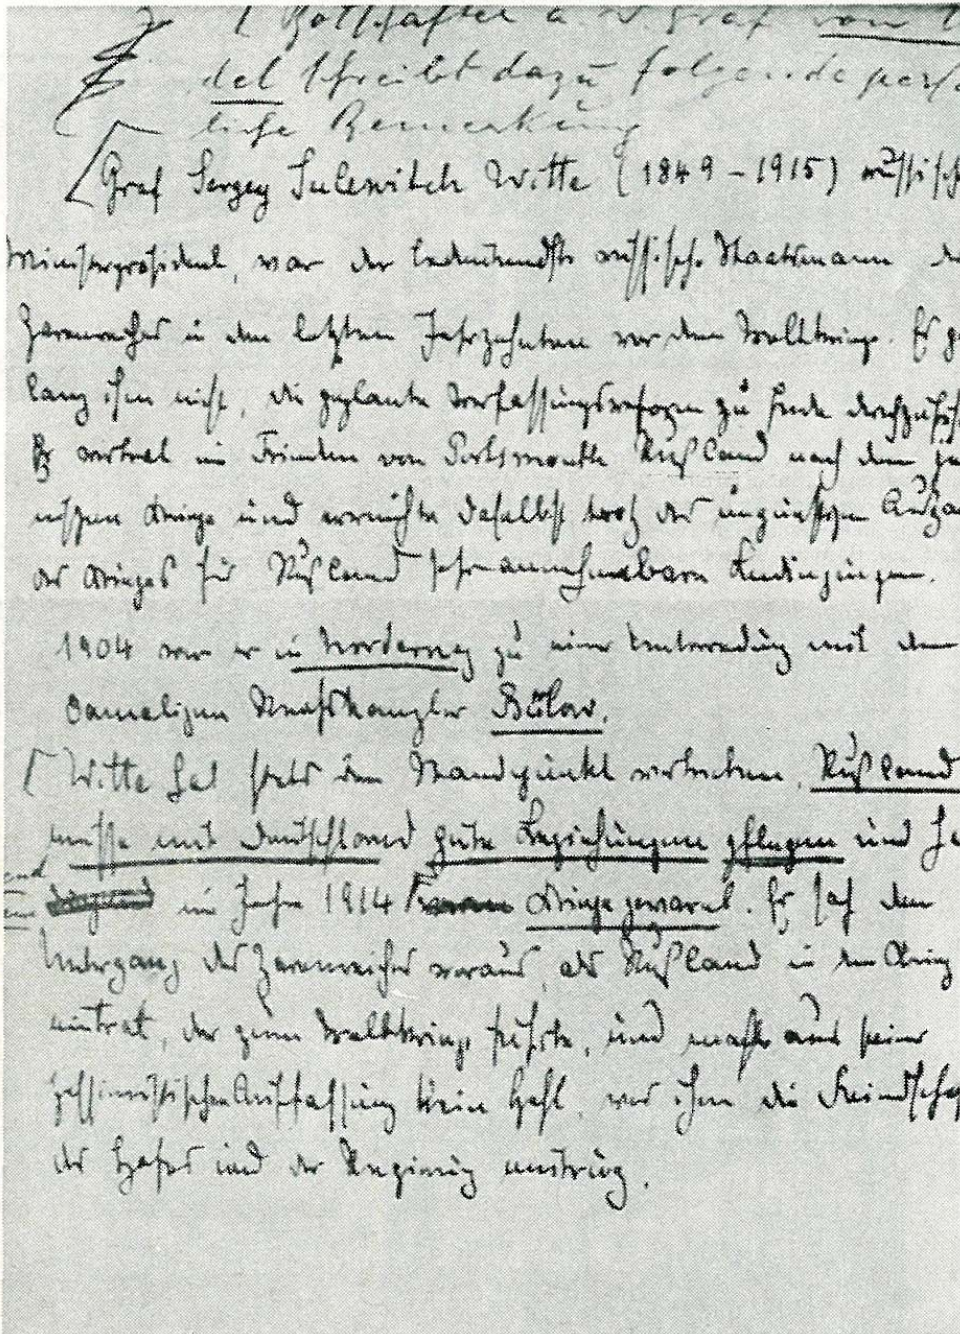 ( Botschafter a. D. Graf von
del schreibt dazu folgende persö
liche Bemerkung
Graf Sergey Julewitch Witte (1849 – 1915) russische
Ministerpräsident, war der bedeutendste russische Staatsmann de
Zarenreiches in den letzten Jahrzehnten vor dem Weltkriege. Es ge
lang ihm nicht, die geplante Verfassungsreform zu Ende durchzufüh
Er vertrat im Frieden von Portsmouth Rußland nach dem ja
nischen Kriege und erreichte daselbst trotz des ungünstigen Ausga
des Krieges für Rußland sehr annehmbare Bedingungen.
1904 war er in Norderney zu einer Unterredung mit dem
damaligen Reichskanzler Bülow.
[ Witte hat stets den Standpunkt vertreten, Rußland
müsse mit Deutschland gute Beziehungen pflegen und ha
im Jahre 1914 Kriege gewarnt. Er sah den
Untergang des Zarenreiches voraus, als Rußland in den Krieg
eintrat, der zum Weltkriege führte, und machte aus seiner
pessimistischen Auffassung kein Hehl, was ihm die Feindschaf
des Hofes und der Regierung eintrug.